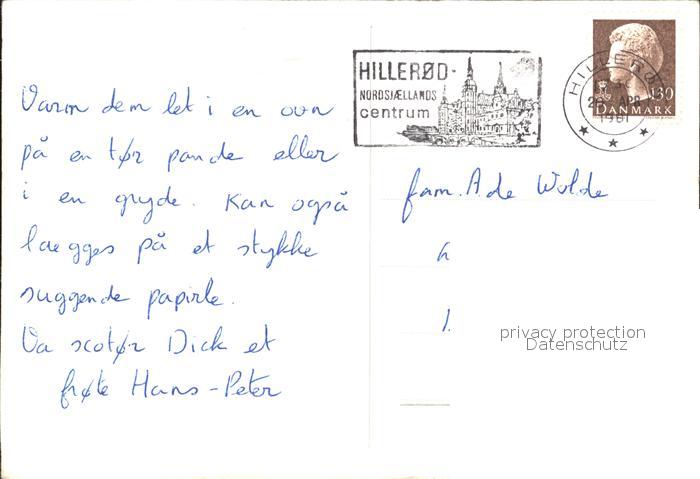 HILLERØD-
NORDSJÆLLANDS
centrum
HILLERØD
1981
130
DANMARK
Varm dem let i en ovn
på en tør pande eller
i en gryde. Kan også
lægges på et stykke
suggende papirle.
Va scotør Dick et
frøte Hans-Peter
fam. A. de Wolde
privacy protection
Datenschutz